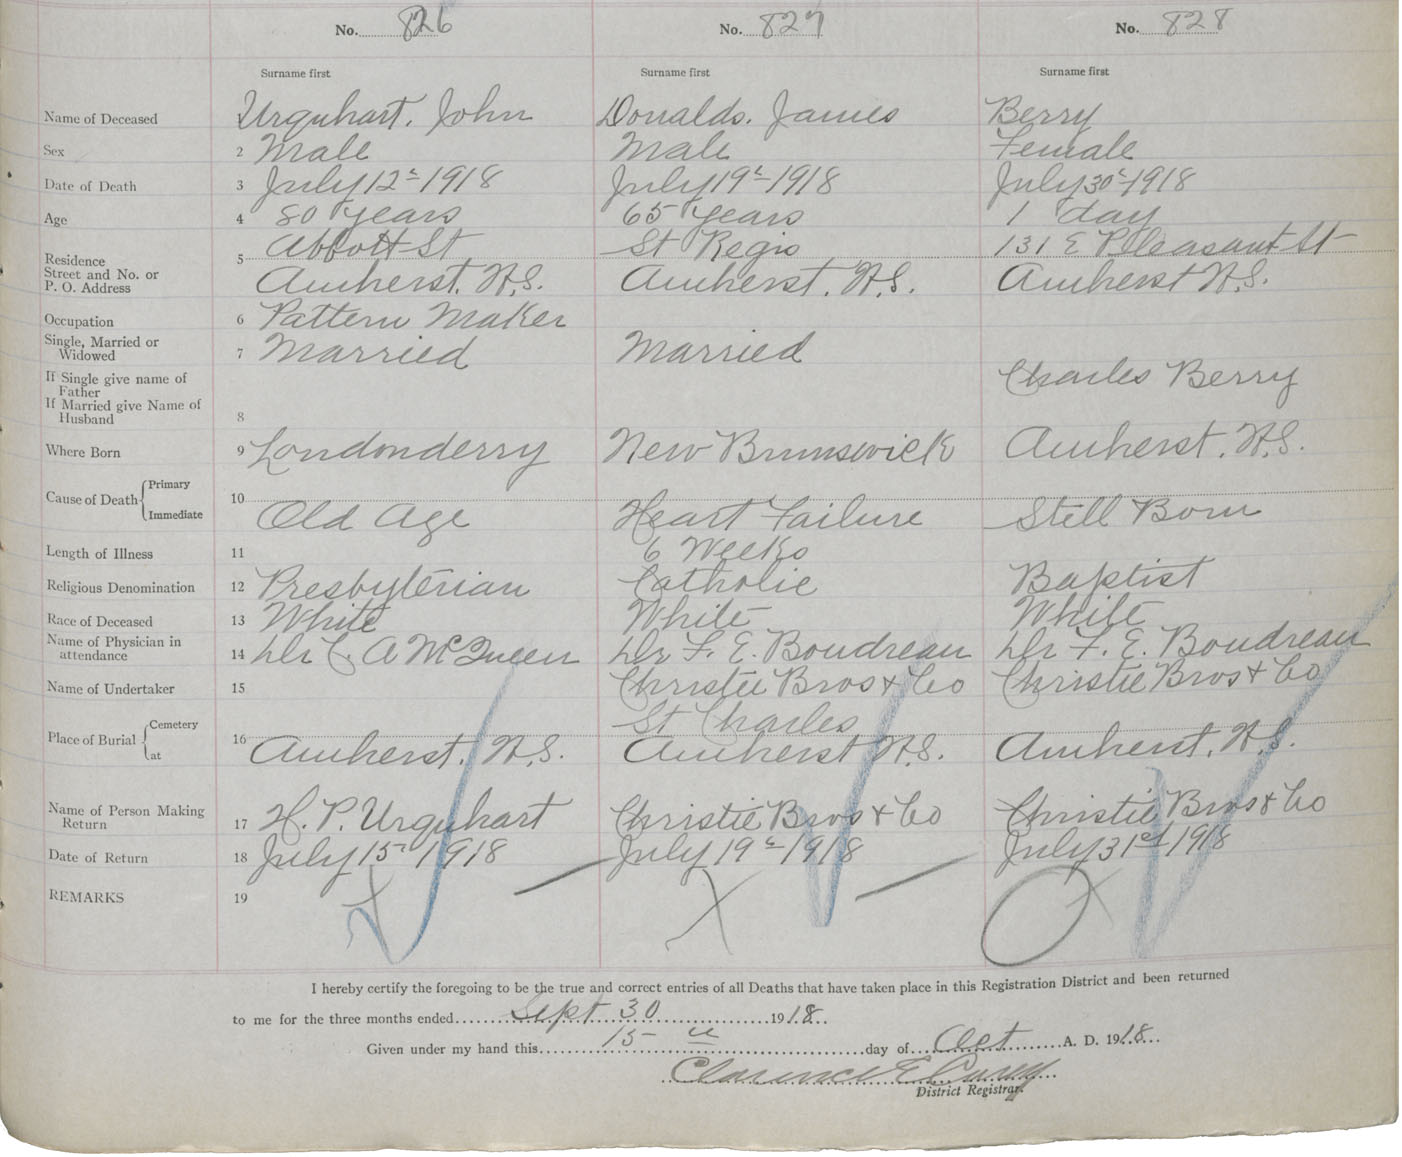 No. 826 No. 827 No. 828
Surname first Surname first Surname first
Name of Deceased Urquhart, John Donalds, James Berry
Sex 2 Male Male Female
Date of Death 3 July 12th 1918 July 19th 1918 July 30th 1918
Age 4 80 years 65 years 1 day
Residence 5 Abbott St St Regis 131 E Pleasant St
Street and No. or
P. O. Address Amherst, N.S. Amherst, N.S. Amherst N.S.
Occupation 6 Pattern Maker
Single, Married or
Widowed 7 Married Married
If Single give name of
Father Charles Berry
If Married give Name of
Husband 8
Where Born 9 Londonderry New Brunswick Amherst, N.S.
Cause of Death Primary 10
Immediate Old Age Heart Failure Still Born
Length of Illness 11 6 Weeks
Religious Denomination 12 Presbyterian Catholic Baptist
Race of Deceased 13 White White White
Name of Physician in
attendance 14 Dr C. A McQueen Dr F. E. Boudreau Dr F. E. Boudreau
Name of Undertaker 15 Christie Bros & Co Christie Bros & Co
Place of Burial Cemetery 16 St Charles
at Amherst, N.S. Amherst N.S. Amherst, N.S.
Name of Person Making
Return 17 H. P. Urquhart Christie Bros & Co Christie Bros & Co
Date of Return 18 July 15th 1918 July 19th 1918 July 31st 1918
REMARKS 19 X X X
I hereby certify the foregoing to be the true and correct entries of all Deaths that have taken place in this Registration District and been returned
to me for the three months ended Sept 30 1918
Given under my hand this 15th day of Oct A. D. 1918
Clarence E
District Registrar.